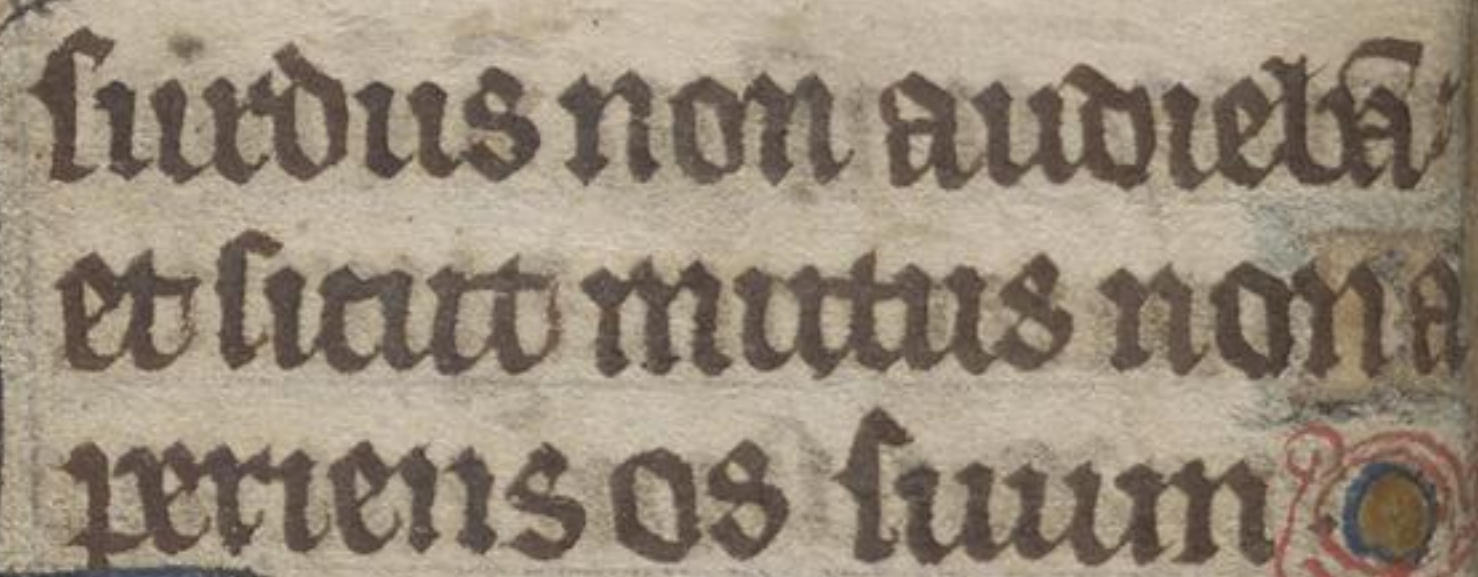 surdus non audiebā:
et sicut mutus non a
periens os suum.